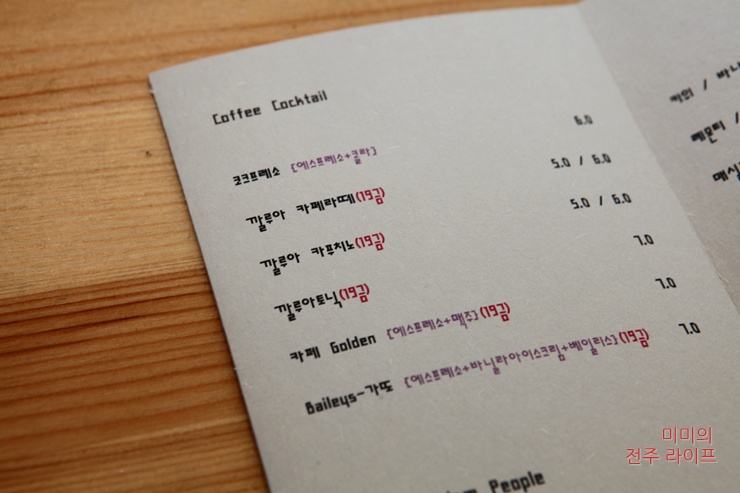 Coffee Cocktail
콕크프레소 [에스프레소+콜라] 6.0
깔루아 카페라떼(19금) 5.0 / 6.0
깔루아 카푸치노(19금) 5.0 / 6.0
깔루아토닉(19금) 7.0
카페 Golden [에스프레소+맥주](19금) 7.0
Baileys-가또 [에스프레소+바닐라아이스크림+베이릴스](19금) 7.0
People
키위 / 바나
레몬티 /
매실
미미의
전주 라이프